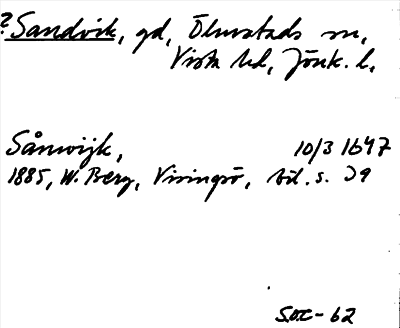 ? Sandvik, gd, Ölmstads sn,
Vista hd, Jönk. l.
Sånwijk, 10/3 1647
1885, W. Berg, Visingsö, bil. s. 39
S.O.E-62